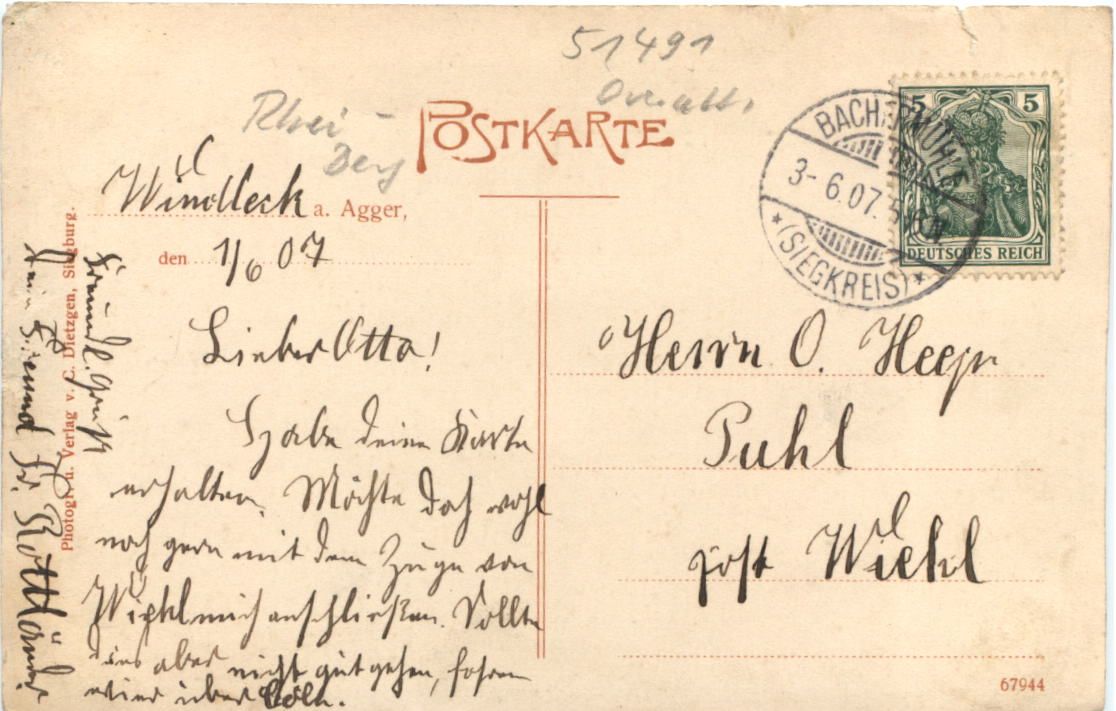 51491
Overath.
Rhei-
Berg
POSTKARTE
5 5
DEUTSCHES REICH
BACHERMÜHLE
3-6.07. 5-6N
*(SIEGKREIS)*
a. Agger,
den 1/6 07
Lieber Otto!
Habe deine Karte
erhalten. Möchte doch wohl
noch gern mit dem Zuge von
Wiehl mich anschließen. Sollte
dies aber nicht gut gehen, fahren
wir über Cöln.
Freundl. Gruß
Dein Freund Fr. Rottländer
Photogr. u. Verlag v. C. Dietzgen, Siegburg.
Herrn O. Heepr
Puhl
post Wiehl
67944